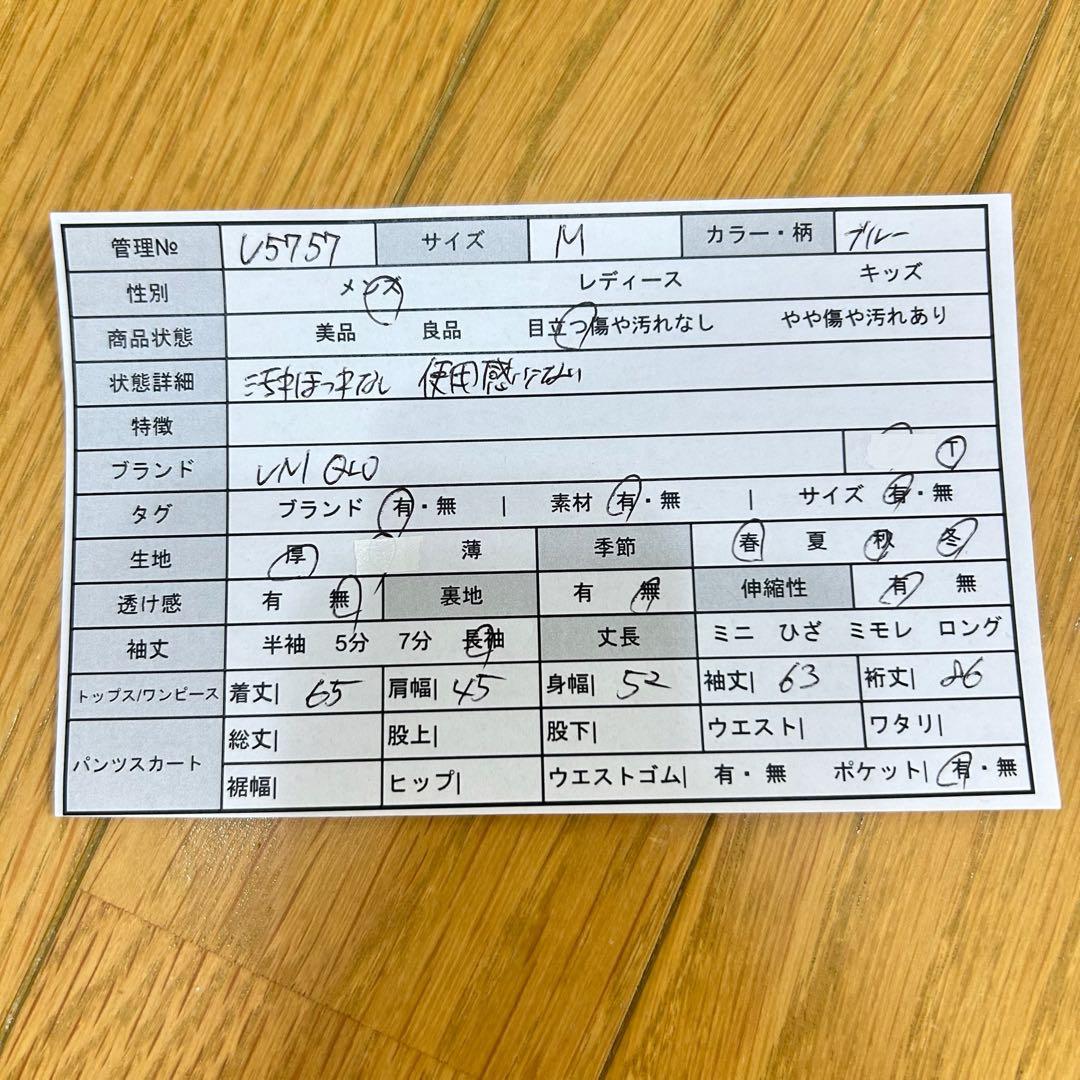 管理№ U5757 サイズ M カラー・柄 ブルー
性別 メンズ レディース キッズ
商品状態 美品 良品 目立つ傷や汚れなし やや傷や汚れあり
状態詳細 汚れほつれなし 使用感
特徴
ブランド UNIQLO T
タグ ブランド 有・無 | 素材 有・無 | サイズ 有・無
生地 厚 薄 季節 春 夏 秋 冬
透け感 有 無 裏地 有 無 伸縮性 有 無
袖丈 半袖 5分 7分 長袖 丈長 ミニ ひざ ミモレ ロング
トップス/ワンピース 着丈| 65 肩幅| 45 身幅| 52 袖丈| 63 裄丈| 86
パンツスカート 総丈| 股上| 股下| ウエスト| ワタリ|
裾幅| ヒップ| ウエストゴム| 有・無 ポケット| 有・無